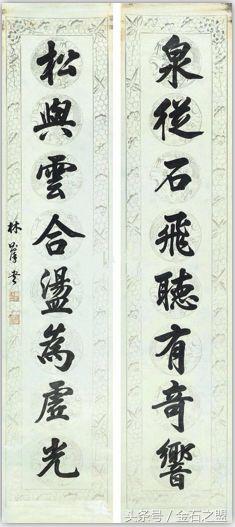 泉從石飛聽有奇響
松與雲合盪為虛光
头条号 / 金石之盟